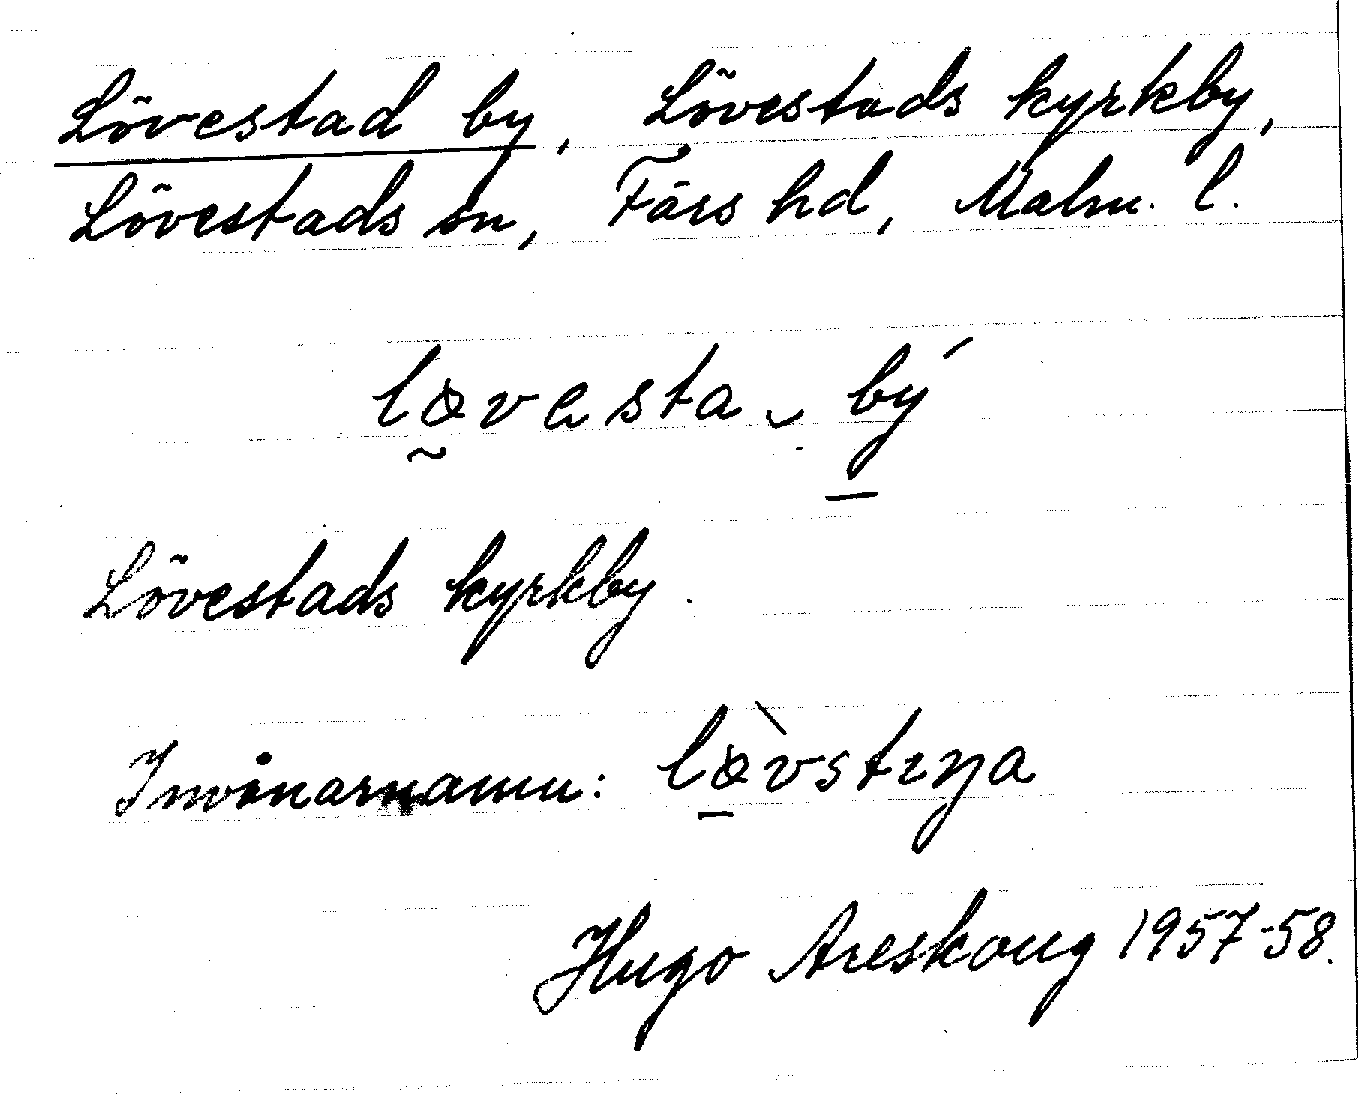 Lövestad by, Lövestads kyrkby,
Lövestads sn, Färs hd, Malm. l.
løvesta by´
Lövestads kyrkby.
Invånarnamn: lø`vstɪŋa
Hugo Areskoug 1957-58.